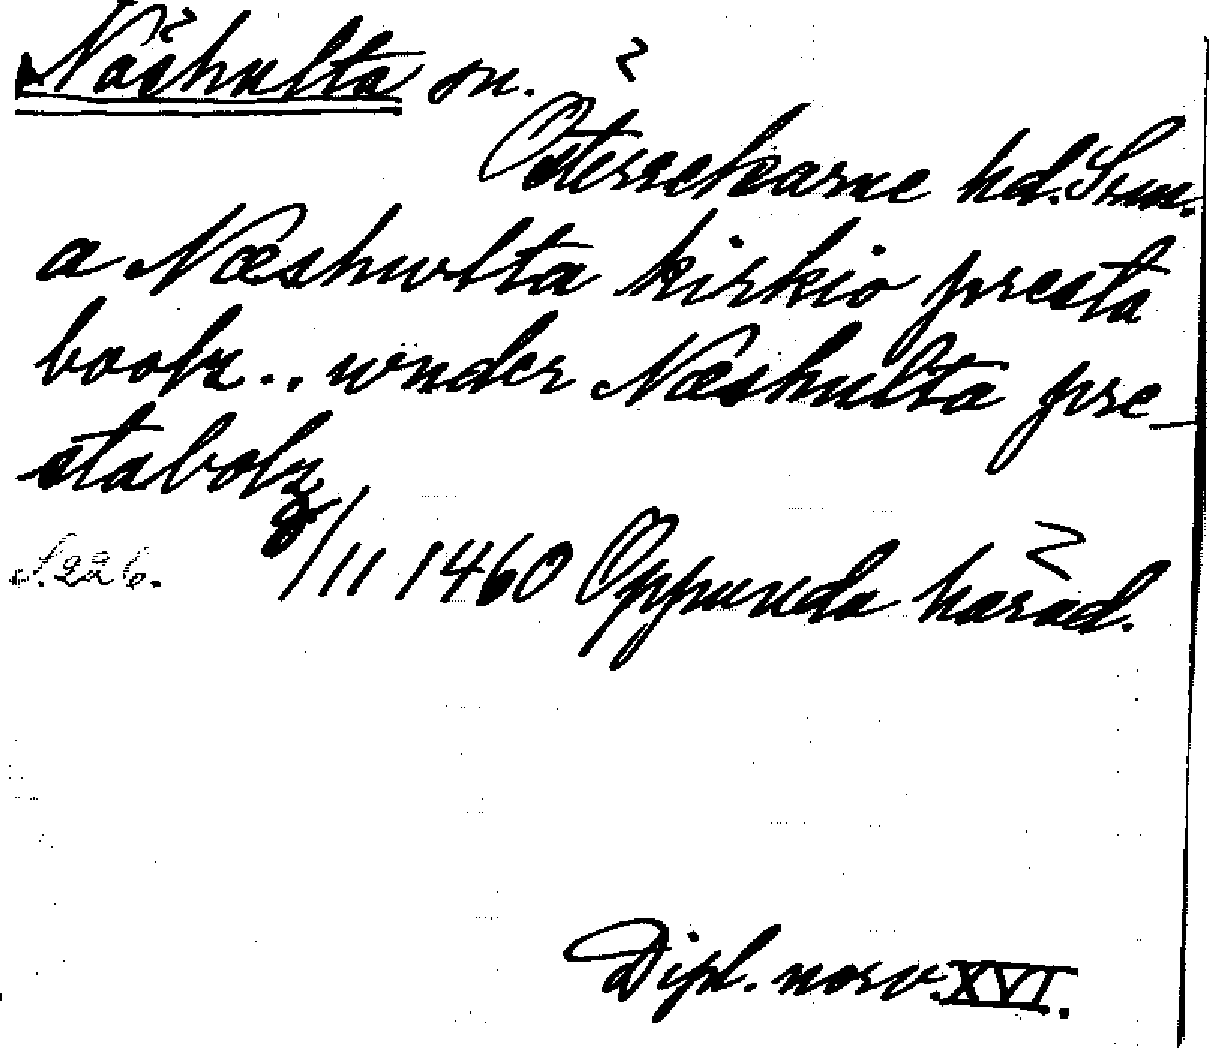 Näshulta sn.
Österrekarne hd. Srm.
a Næshwlta kirkio presta
boolz.. wnder Næshulta pre_
stabolz
S. 226. 8/11 1460 Oppunda härad.
Dipl. norv. XVI.